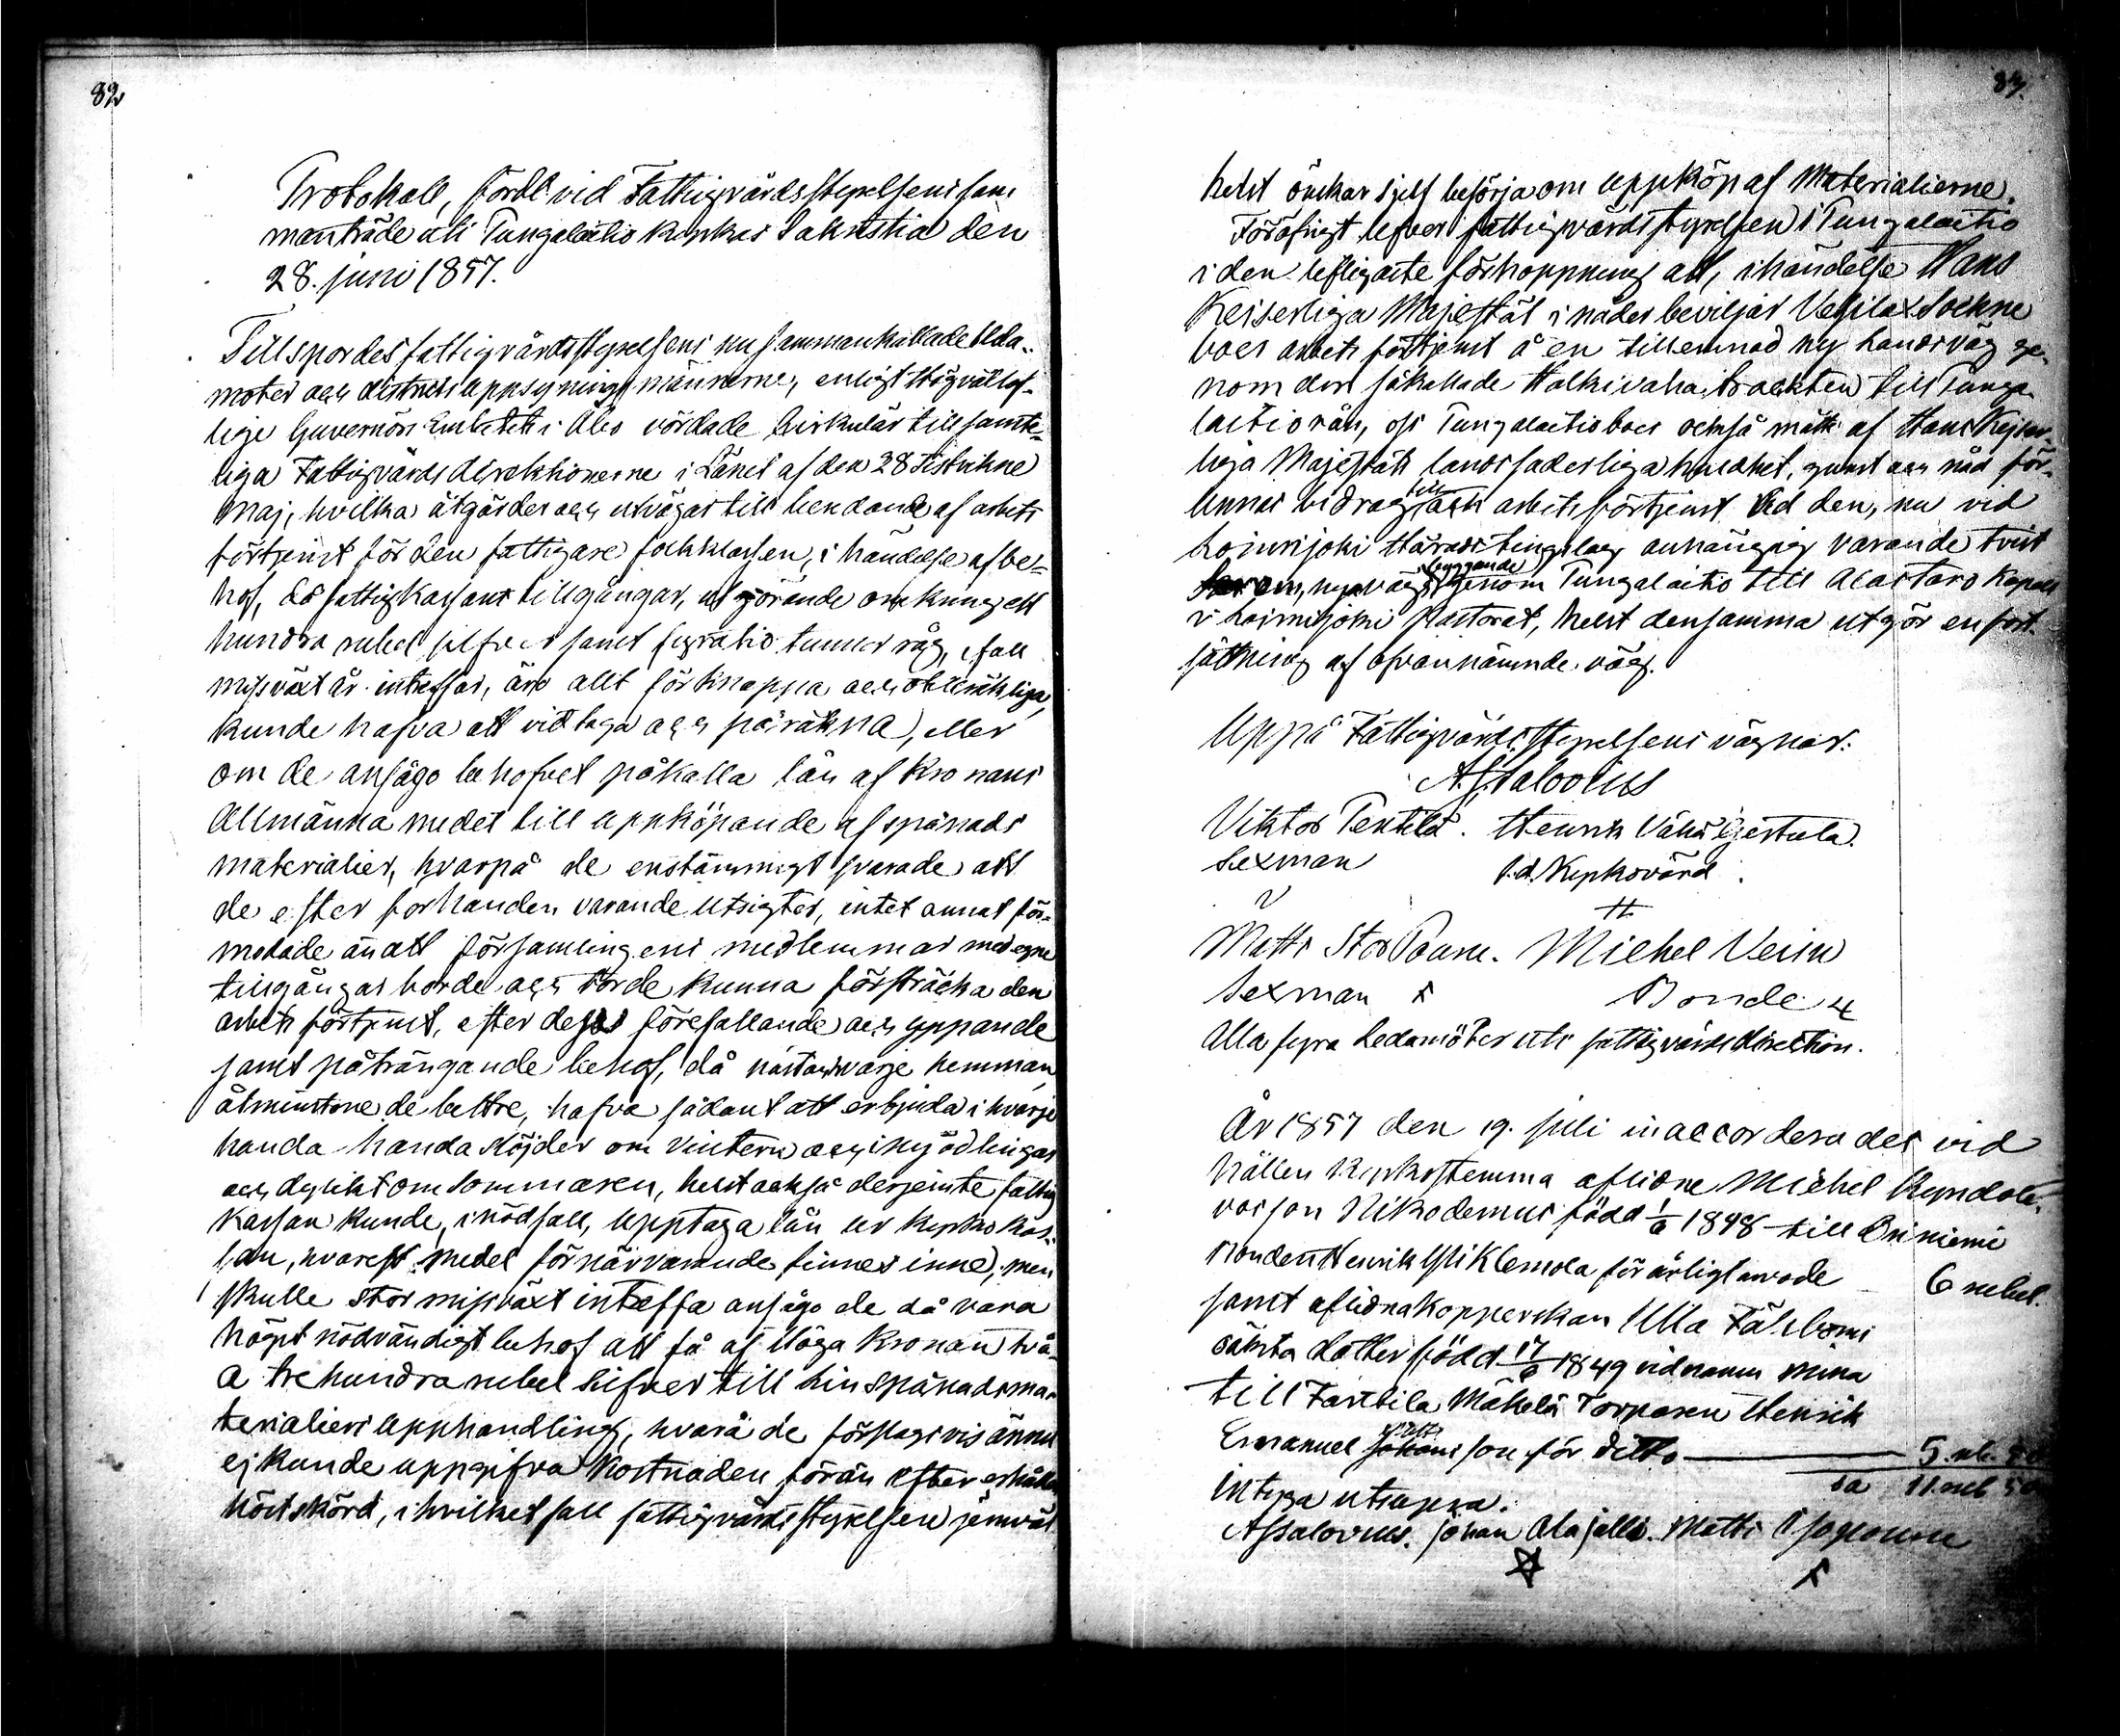 82
Protokoll, fördt vid Fattigvårdsstyrelsens sam
manträde uti Tungalaitio kyrkas Sakristia den
28. juni 1857.
Tillspordes fattigvårdsstyrelsens nu sammankallade Leda-
moter och districts uppsyningsmännerne, enligt Högvällof-
lige Guvernörs Embetets i Åbo vördade Cirkulär till samte-
liga Fattigvårds direktionerne i Länet af den 28 sistvikne
Maj, hvilka åtgärder och utvägar till beredande af arbets
förtjenst för den fattigare folkklassen, i händelse af be-
hof, då fattigkassans tillgångar, utgörande omkring ett
hundra rubel silfver samt fyratio tunnor råg, ifall
missväxt år inträffar, äro allt för knappa och otillräkliga,
kunde hafva att vidtaga och påräkna, eller
om de ansågo behofvet påkalla lån af Kronans
Allmänna medel till uppköpande af spånads
materialier, hvarpå de enstämmigt svarade att
de efter forhanden varande utsigter, intet annat för-
modade än att församlingens medlemmar med egne
tillgångar borde och torde kunna försträcka den
arbets förtjenst, efter deras förefallande och yppande
samt påträngande behof, då nästan hvarje hemman,
åtminstone de bättre, hafva sådant att erbjuda i hvarje
handa handaslöjder om Vintern och i nyodlingar
och dylikt om Sommaren, helst också derjemte fattig
Kassan kunde, i nödfall, upptaga lån ur Kyrko kas-
san, hvarest medel för närvarande finnes inne, men
skulle stor missväxt inträffa ansågo de då vara
högst nödvändigt behof att få af Höga Kronan två
a trehundra rubel Silfver till Lin spånadsma-
terialiers upphandling, hvarå de förslagsvis ännu
ej kunde uppgifva kostnaden förän efter erhållen
höstskörd, i hvilket fall fattigvårdsstyrelsen jemväl
83.
helst önskar sjelf besörja om uppköp af Materialierne.
Föröfrigt lefver fattigvårdsstyrelsen i Tungalaitio
i den lifligaste förhoppning att, i händelse Hans
Kejserliga Majestät i nåder beviljar Vesilax Sockne
boer arbets förtjenst å en tillernad ny landsväg ge-
nom den såkallade Halkivaha trackten till Tunga
laitio rån, oss Tungalaitioboer också måtte af Hans Kejser-
liga Majestäts landsfaderliga huldhet, gunst och nåd för-
unnas bidrag till arbets förtjenst vid den, nu vid
Loimijoki Härads tingslag anhängig varande tvist
om, nya vägs byggande genom Tungalaitio till Alastaro Kapell
i Loimijoki Pastorat, helst densamma utgör en fort-
sättning af ofvannämnde väg.
Uppå Fattigvårdsstyrelsens vägnar:
A. Ssalovius
Viktor Penttilä. Henrik Vähä Gertula.
Sexman t.d. Kyrkovärd.
Matti Stor Paun. Michel Veisu
Sexman Bonde
Alla fyra Ledamöter uti fattigvårdsdirection.
År 1857 den 19. juli inaccorderades vid
hållen Kyrkostemma aflidne Michel
son Nikodemus född 1/6 1848 till
bonden Henrik Yli Klemola för årligt arvode 6 rubel.
samt aflidna Kopperskan Ulla
äkta dotter född 17/6 1849 vid namn Mina
till Farttila Mäkelä Torparen Henrik
Emanuel son för ditto 5 rub. 50
Sa 11 rub 50
Intyga utsupra.
A. Ssalovius. Johan Alajalli. Matti